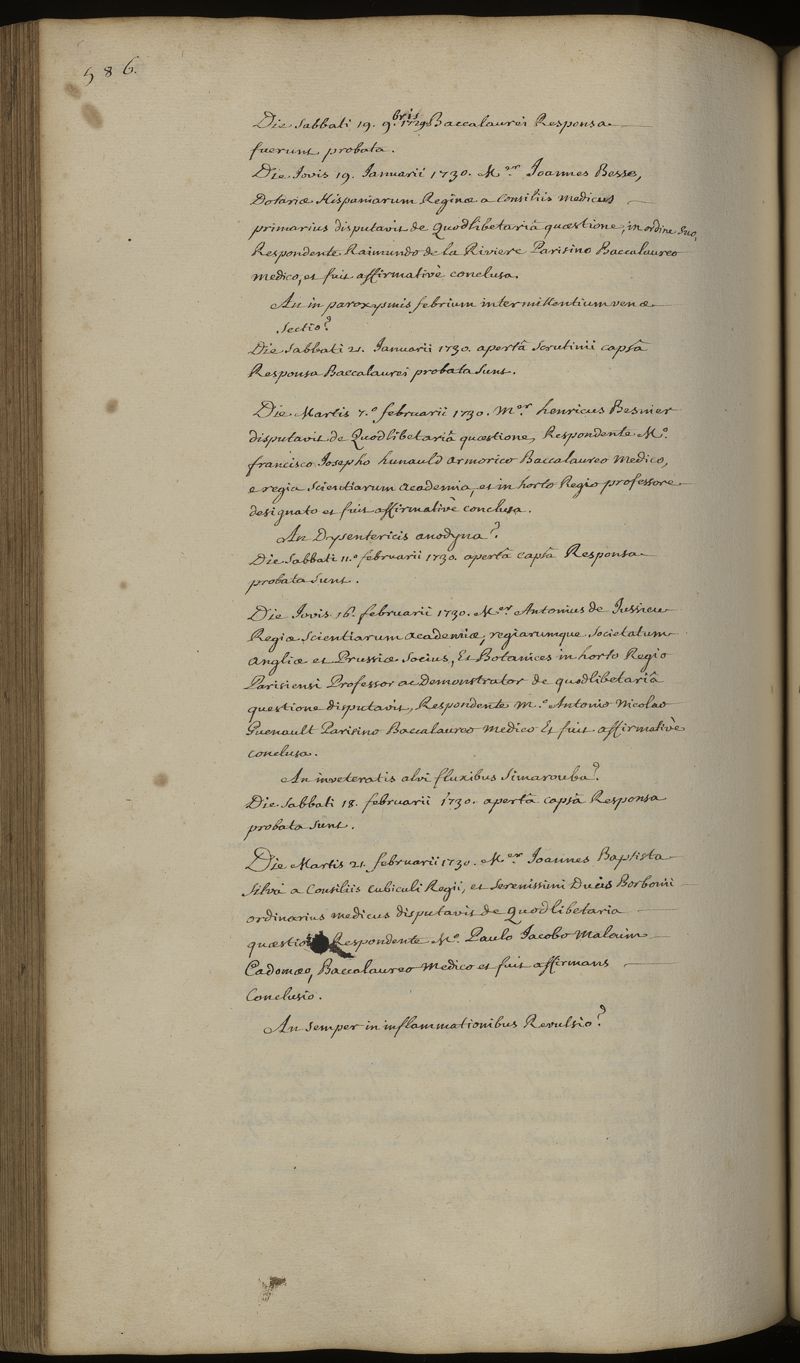 586.
Die Sabbati 19. 9.bris 1729 Baccalaurei Responsa
fuerunt probata.
Die Jovis 19. Januarii 1730. M.er Joannes Besse,
Dotariæ Hispaniarum Reginæ a Consiliis medicus
primarius disputavit de Quodlibetariâ quæstione, in ordine suo,
Respondente Raimundo de la Riviere Parisino Baccalaureo
medico, et fuit affirmativè conclusa.
An in paroxysmis febrium intermittentium venæ
sectio?
Die Sabbati 21. Januarii 1730. apertâ Scrutinii capsâ
Responsa Baccalaurei probata sunt.
Die Martis 7.º februarii 1730. M.er henricus Besnier
disputavit de Quodlibetariâ quæstione, Respondente M.º
francisco Josepho hunauld armorico Baccalaureo medico,
e regia scientiarum academia, et in horto Regio professore
designato et fuit affirmativè conclusa.
An Dysentericis anodyna?
Die Sabbati 11.º februarii 1730. apertâ capsâ Responsa
probata sunt.
Die Jovis 16. februarii 1730. M.er Antonius de Jussieu
Regiæ Scientiarum academiæ, regiarumque Societatum
angliæ et Prussiæ Socius, Et Botanices in horto Regio
Parisiensi Professor ac Demonstrator de quodlibetariâ
questione disputavit, Respondente M.º Antonio Nicolao
Guenault Parisino Baccalaureo medico Et fuit affirmativè
conclusa.
An inveteratis alvi fluxibus Simarouba?
Die Sabbati 18. februarii 1730. apertâ capsâ Responsa
probata sunt.
Die Martis 21. februarii 1730. M.er Joannes Baptista
Silva a Consiliis cubiculi Regii, et Serenissimi Ducis Borbonii
ordinarius medicus disputavit de Quodlibetaria
quæstio Respondente M.º Paulo Jacobo Malouin
Cadomæo, Baccalaureo medico et fuit affirmans
Conclusio.
An semper in inflammationibus Revulsio?